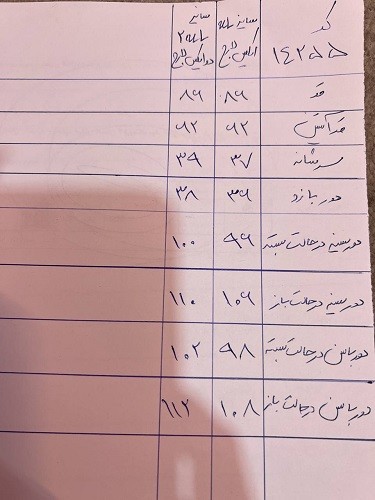 کد
۱۴۲۵۵
سایز
ایکس لارج
سایز
۲
دو ایکس لارج
قد ۸۶ ۸۶
قد آستین ۶۲ ۶۲
سرشانه ۳۷ ۳۹
دور بازو ۳۶ ۳۸
دور سینه در حالت بسته ۹۶ ۱۰۰
دور سینه در حالت باز ۱۰۶ ۱۱۰
دور باسن در حالت بسته ۹۸ ۱۰۲
دور باسن در حالت باز ۱۰۸ ۱۱۲